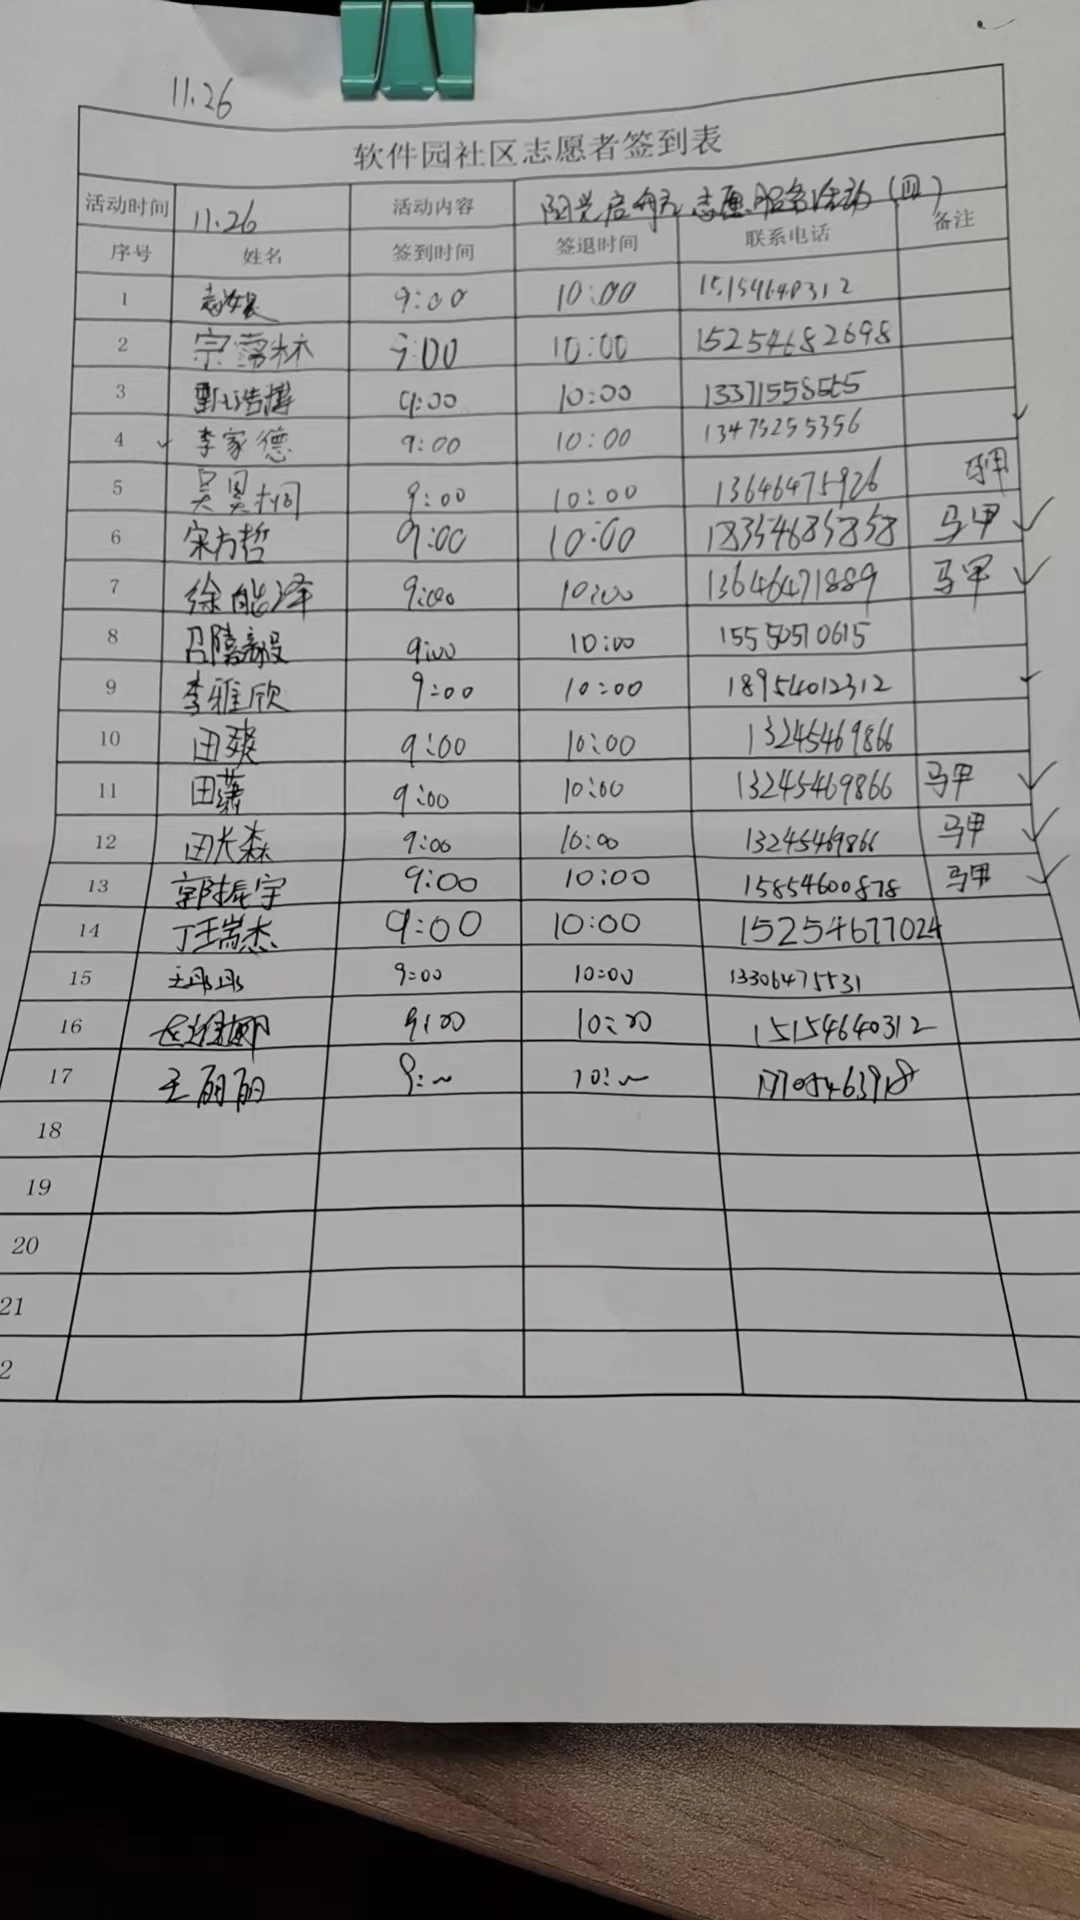 11.26
软件园社区志愿者签到表
活动时间 11.26 活动内容 阳光启航志愿服务活动(四)
序号 姓名 签到时间 签退时间 联系电话 备注
1 9:00 10:00 15154640312
2 宗霈林 9:00 10:00 15254682698
3 浩博 9:00 10:00 13371558555
4 李家德 9:00 10:00 13475255356
5 吴昊桐 9:00 10:00 13646475926 马甲
6 宋方哲 9:00 10:00 18354685858 马甲
7 徐能泽 9:00 10:00 13646471889 马甲
8 9:00 10:00 15550510615
9 李雅欣 9:00 10:00 18954012312
10 田爽 9:00 10:00 13245469866
11 田潇 9:00 10:00 13245469866 马甲
12 田长森 9:00 10:00 13245469866 马甲
13 郭振宇 9:00 10:00 15854600878 马甲
14 丁王嵩杰 9:00 10:00 15254677024
15 王彤彤 9:00 10:00 13306475531
16 9:00 10:00 15154640312
17 王丽丽 9: 10:
18
19
20
21
2